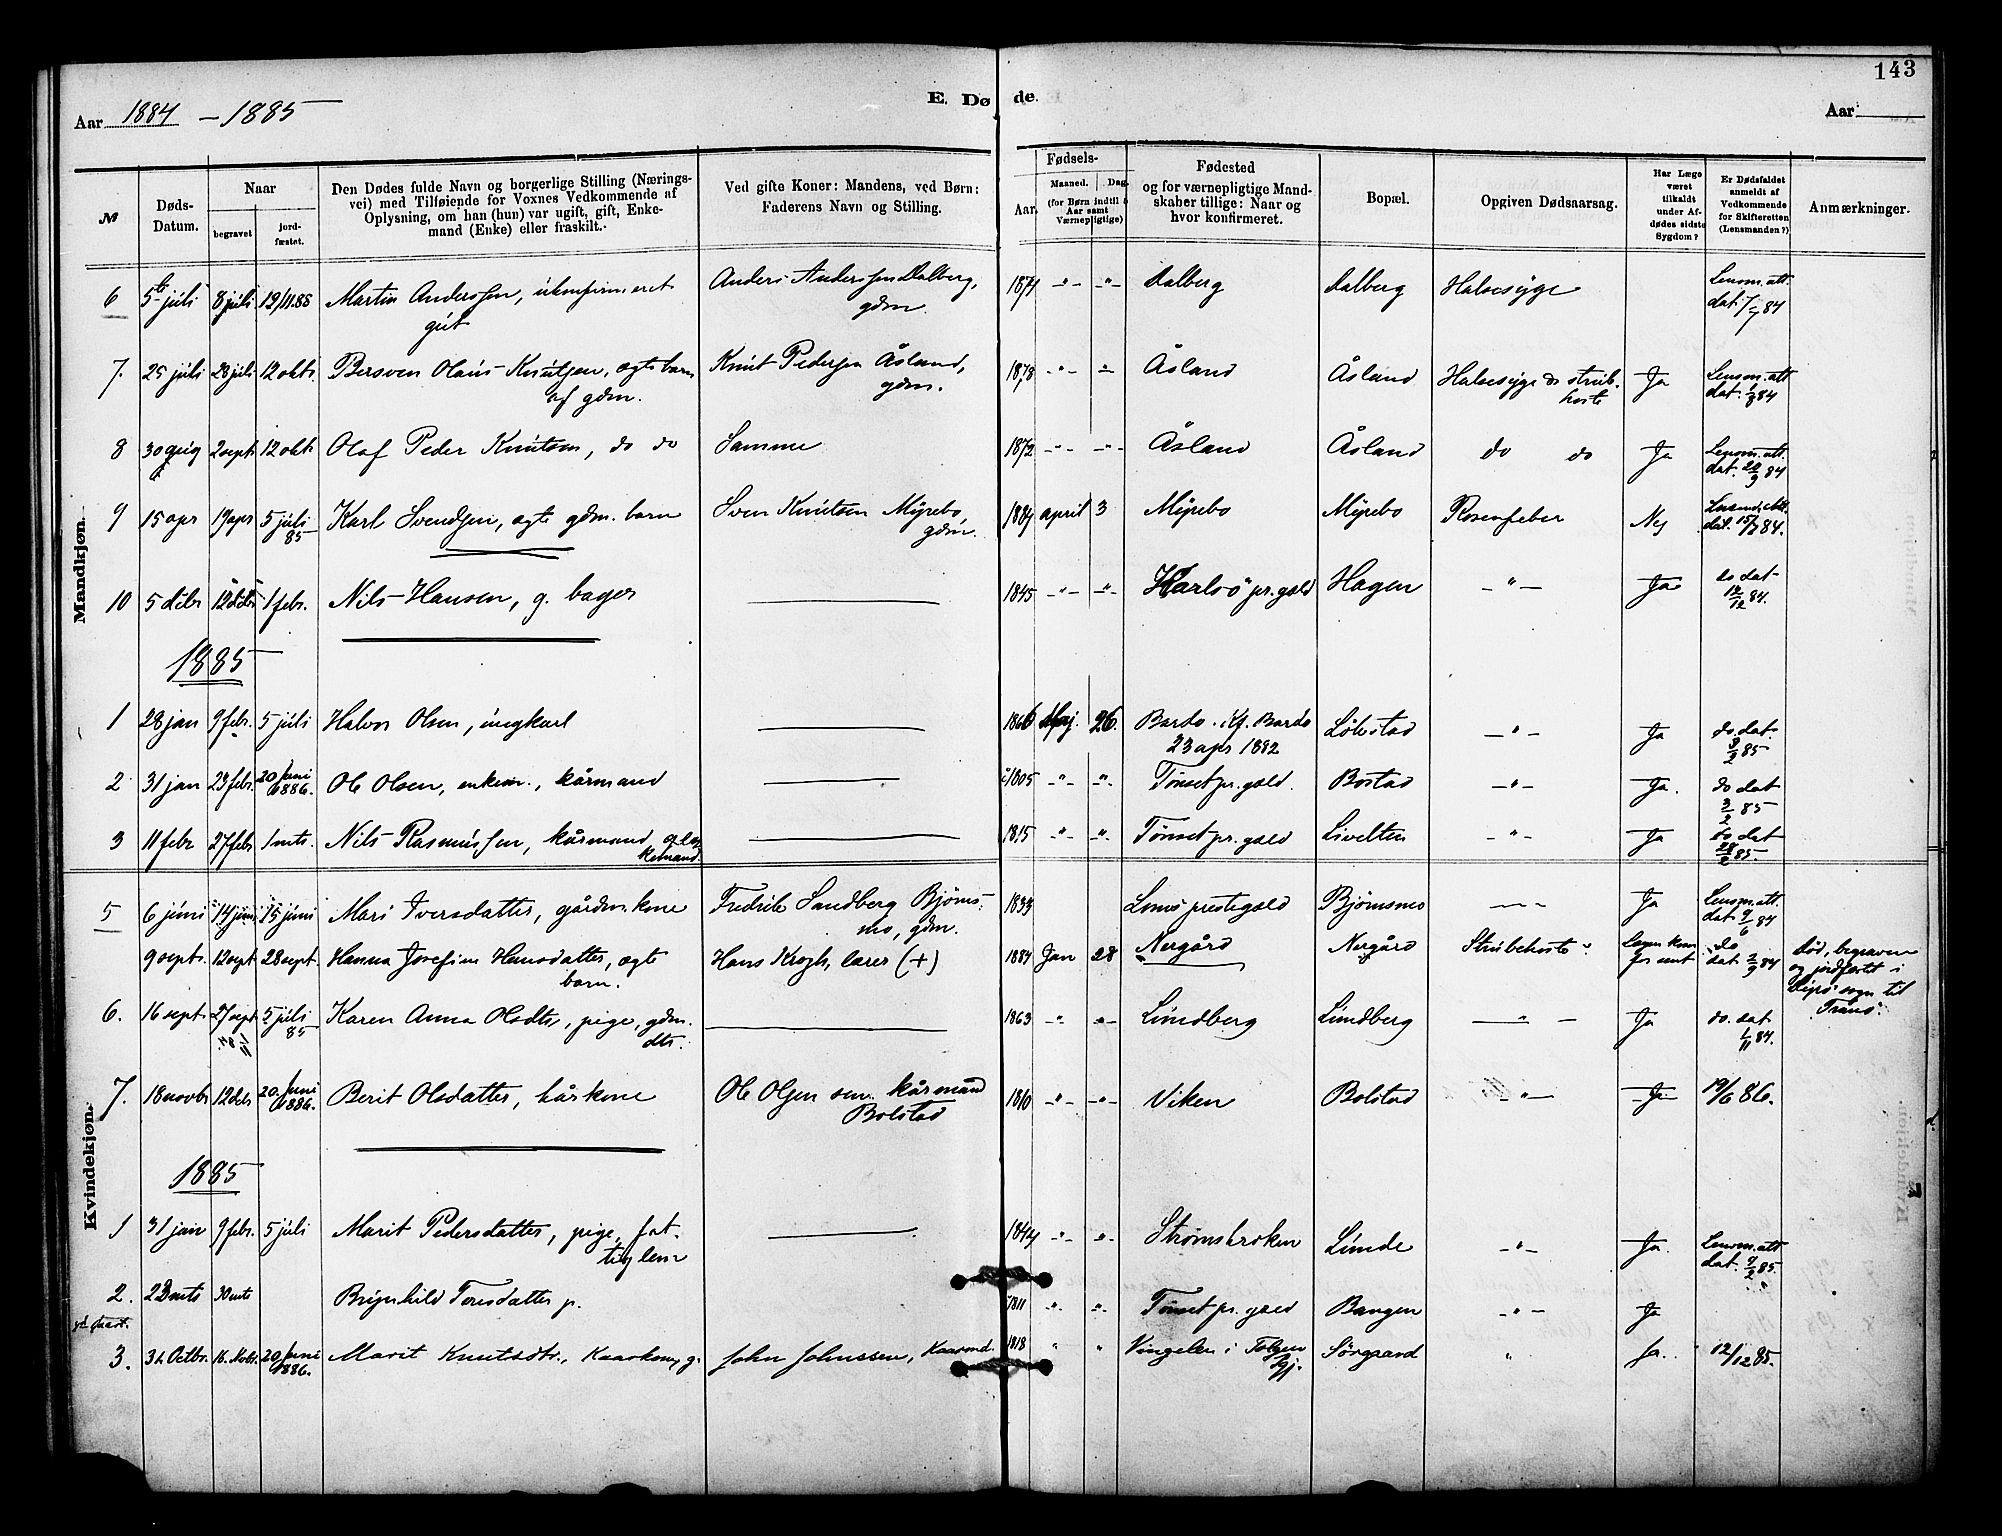 143
Aar 1884 – 1885
E. Døde.
Aar
№
Døds-Datum.
Naar
begravet
jordfæstet.
Den Dødes fulde Navn og borgerlige Stilling (Nærings-
vei) med Tilføiende for Voxnes Vedkommende af
Oplysning, om han (hun) var ugift, gift, Enke-
mand (Enke) eller fraskilt.
Ved gifte Koner: Mandens, ved Børn:
Faderens Navn og Stilling.
Fødsels-
Aar.
Maaned.
Dag.
(for Børn indtil 2
Aar samt
Værnepligtige)
Fødested
og for værnepligtige Mand-
skaber tillige: Naar og
hvor konfirmeret.
Bopæl.
Opgiven Dødsaarsag.
Har Læge
været
tilkaldt
under Af-
dødes sidste
Sygdom?
Er Dødsfaldet
anmeldt af
Vedkommende
for Skifteretten
(Lensmanden?)
Anmærkninger.
Mandkjøn.
6 5te juli 8 juli Martin Anderssen, ukonfirmeret Anders Anderssen Dalberg, 1874 –"– –"– Dalberg Dalberg Halssyge Lensm. att.
gut gdm. dat. 7/7 84
7. 25 juli 28 juli 12 okt. Bersven Olaus Knutsen, ægte barn Knut Pedersen Åsland, 1878 –"– " Åsland Åsland Halssyge & strub- Ja Lensm. att
af gdm. gdm. hoste dat. 1/8 84
8 30 2 sept 12 okt Olaf Peder Knutsen, do do Samme 1872 –"– –"– Åsland Åsland do do Ja Lensm. att.
dat. 20/9 84
9 15 apr 19 apr 5 juli 85 Karl Svendsen, ægte gdm. barn Sven Knutsen Myrebo 1884 april 3 Myrebo Myrebo Rosenfeber Nej
gdm. 84.
10 5 debr 12 debr 1 febr. Nils Hansen, g. bager 1845 –"– –"– Karlsö pr.gæld Hagen –"– Ja do dat
12/12 84.
1885
1 28 jan 9 febr. 5 juli Halvor Olsen, ungkarl 1866 Maj 26. Bardo. Kf. Bardo Løkstad –"– Ja do. dat.
23 apr 1882 3/2 85
2 31 jan 23 febr. 20 Juni 1886. Ole Olsen, enkem., kårmand 1805 –"– –"– Tönset pr. gæld. Bostad –"– Ja. do dat
3/2 85
3 11 febr 27 febr. 1 mts. Nils Rasmussen, kårmand og en- 1815 –"– –"– Tönset pr. gæld Livelten –"– Ja do dat
kemand. 28/2 85.
Kvindekjøn.
5 6 juni 14 juni 15 juni Mari Iversdatter, gårdm. kone Fredrik Sandberg Bjørns- 1833 Loms prestegæld Bjørnsmo –"– Ja Lensm. att.
mo, gdm. dat. 9/6 84
9 septr. 12 sept 28 sept. Hanna Josefine Hansdatter, ægte Hans Krogh, lærer (+) 1884 Jan 28 Nergård Nergård Strubehoste for sent do dat 2/9 84 død, begraven
barn. og jordfæstet i
sogn til
Tranø.
6. 16 sept. 27 sept 5 juli 85 Karen Anna Olsdtr, pige, gdm. 1863 –"– –"– Lundberg Lundberg –"– Ja do. dat
dtr. 1/11 84.
7. 18 novbr 12 debr 20 Juni 1886. Berit Olsdatter, kårkone Ole Olsen sen. kårmand 1810 –"– –"– Viken Bolstad –"– Ja 19/6 86.
Bolstad
1885
1 31 jan 9 febr. 5 juli Marit Pedersdatter, pige, fat- 1844 –"– –"– Strømsbroken Lunde –"– Ja. Lensm. att
tiglem dat. 9/2 85.
2. 22 mts 30 mts Brynhild Toresdatter p. 1811 –"– –"– Tönset pr. gæld Bangen –"– Ja
3. 31 Octbr. 16. Novbr. 20 Juni 1886. Marit Knutsdtr., Kaarkone, g. John Johnssen, Kaarmd. 1818 " " Vingelen i Tolgen Sørgaard " Ja. 12/12 85.